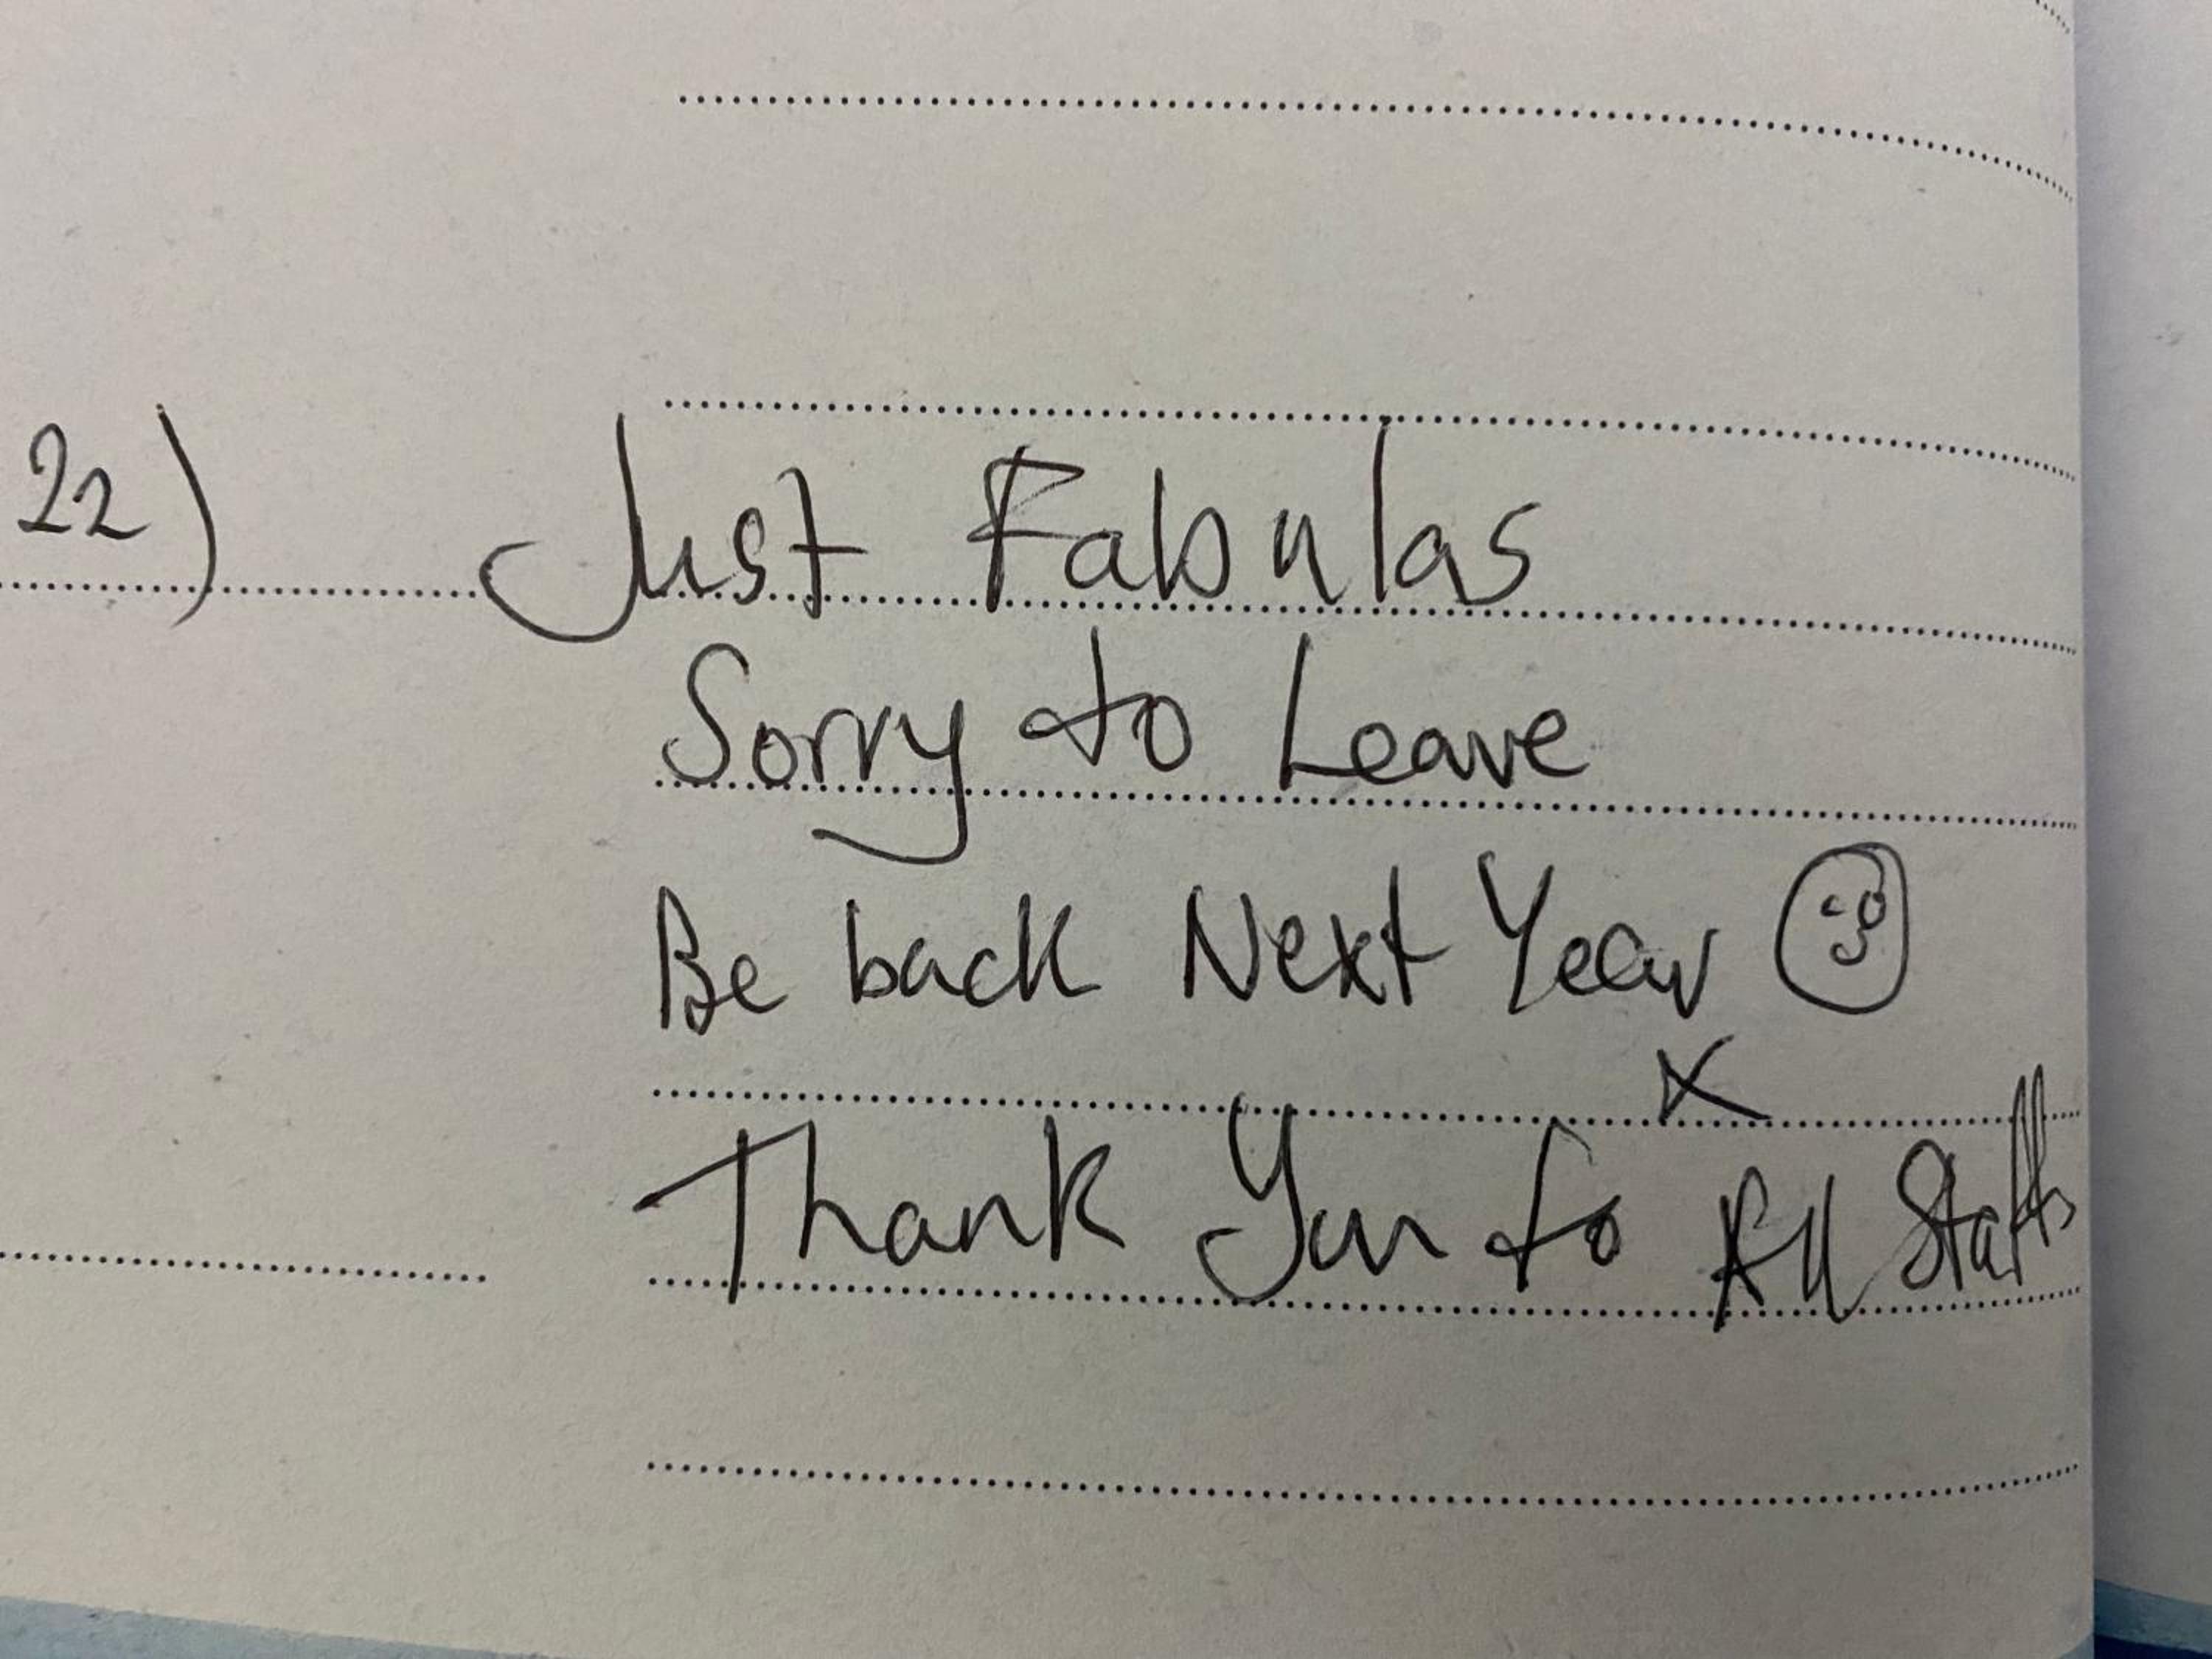 22) Just Fabulas
Sorry to Leave
Be back Next Year
x
Thank You to All Staffs